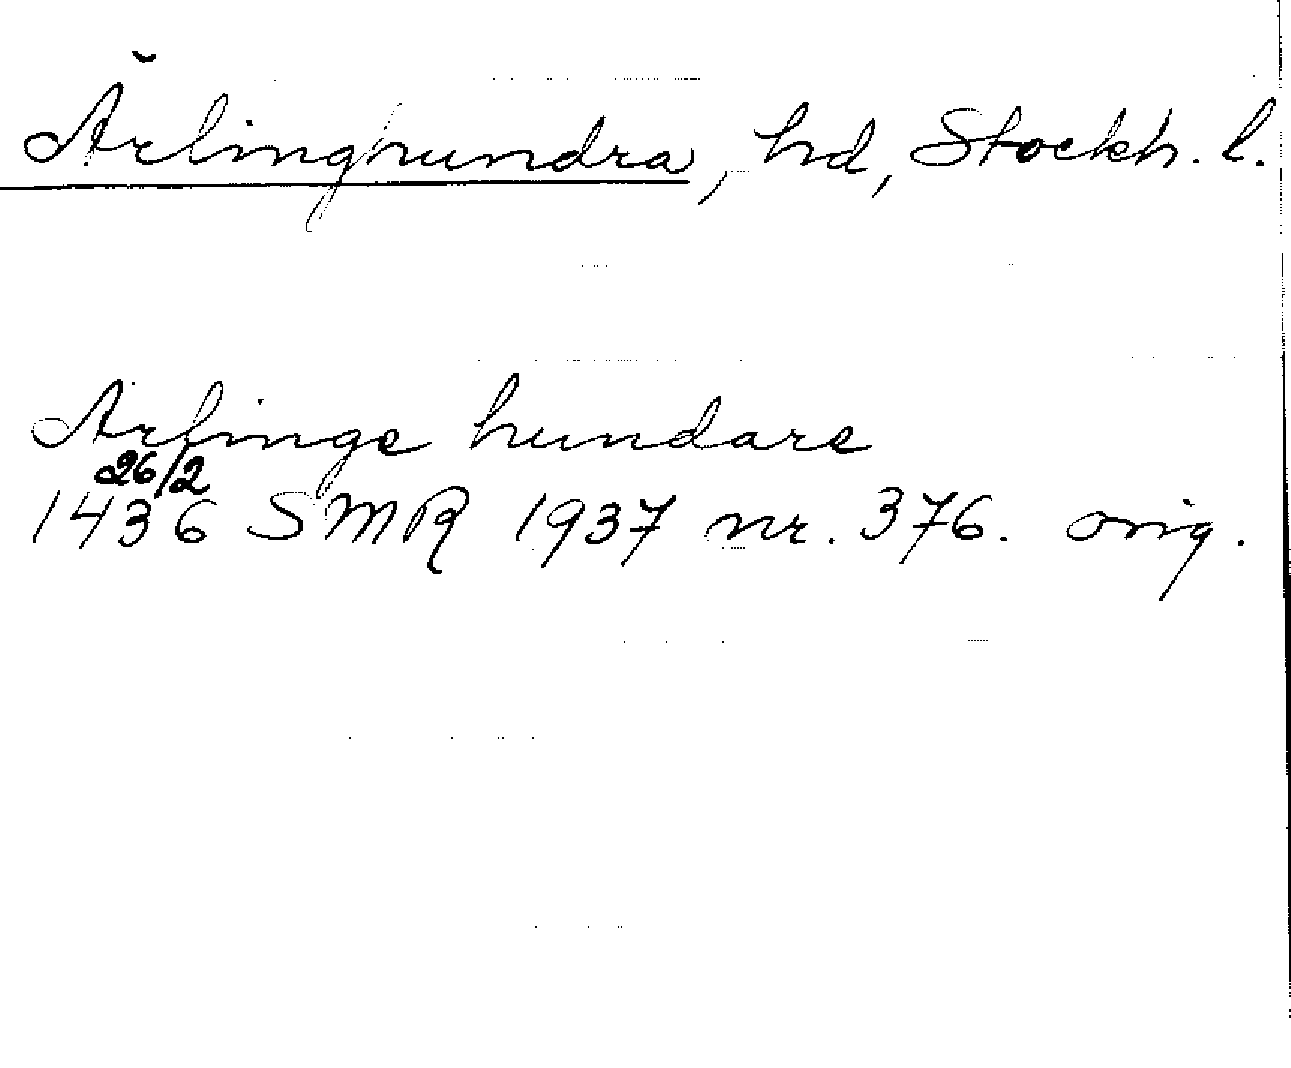 Ärlinghundra, hd, Stockh. l.
Arlinge hundare
26/2
1436 SMR 1937 nr. 376. orig.